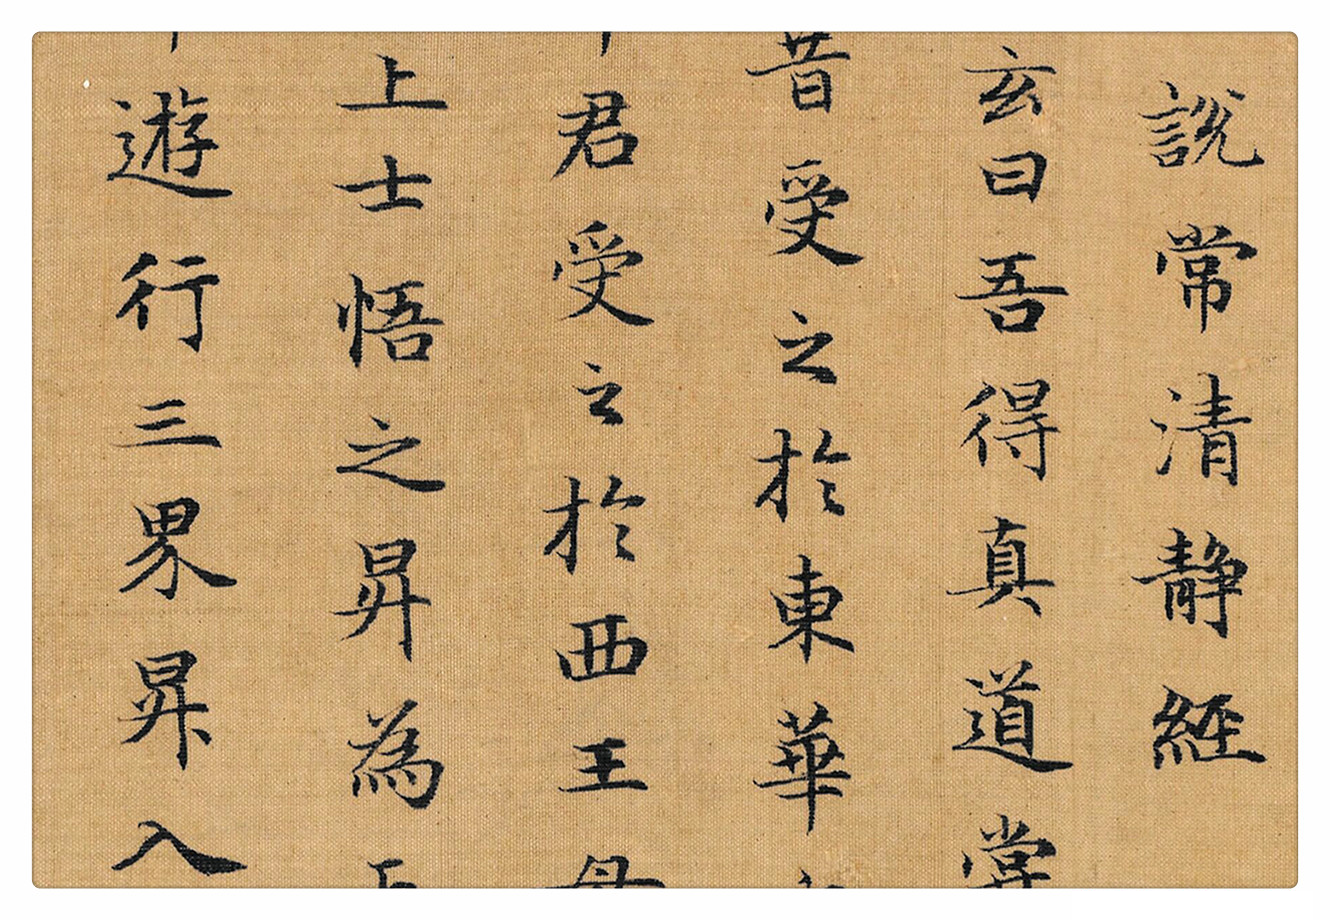 說常清靜經
玄曰吾得真道甞
昔受之於東華
君受之於西王母
上士悟之昇為
遊行三界昇入